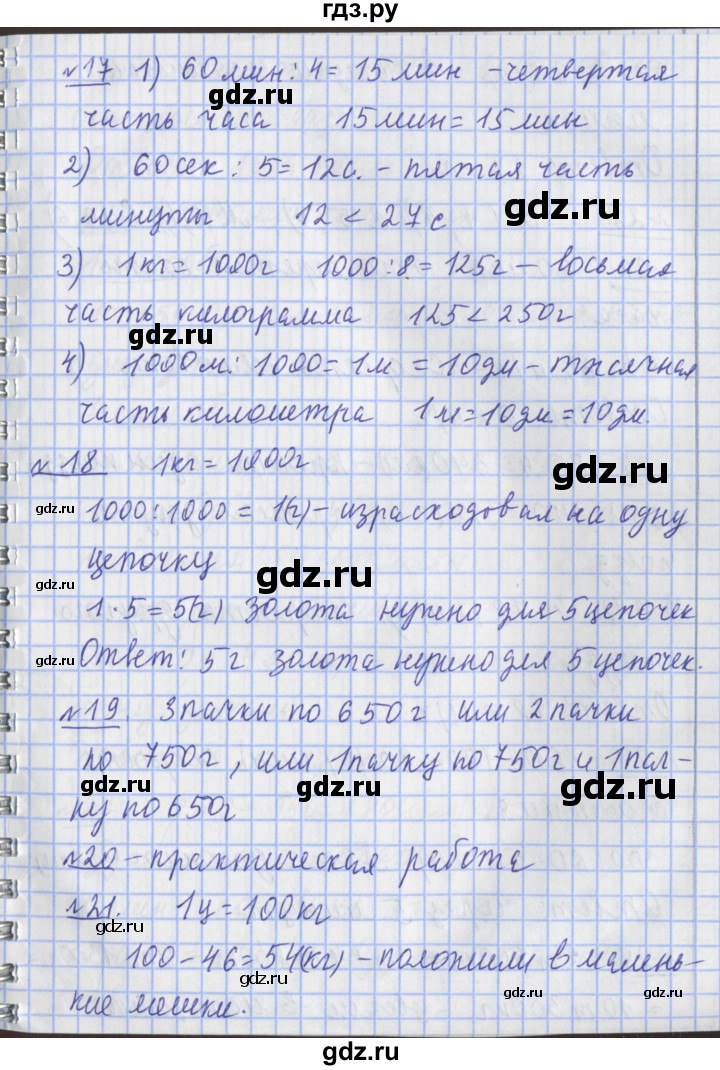 гдз.ру
№17 1) 60 мин : 4 = 15 мин - четвертая
gdz.ru
gdz.ru
часть часа 15 мин = 15 мин
2) 60 сек : 5 = 12 с. - пятая часть
gdz.ru
gdz.ru
минуты 12 < 27 с
3) 1 кг = 1000 г 1000 : 8 = 125 г - восьмая
часть килограмма 125 < 250 г
gdz.ru
gdz.ru
4) 1000 м : 1000 = 1 м = 10 дм - тысячная
часть километра 1 м = 10 дм = 10 дм.
№18 1 кг = 1000 г
gdz.ru
gdz.ru
1000 : 1000 = 1(г) - израсходовал на одну
цепочку
gdz.ru
gdz.ru
1 · 5 = 5(г) золота нужно для 5 цепочек
Ответ: 5 г золота нужно для 5 цепочек.
gdz.ru
№19. 3 пачки по 650 г или 2 пачки
gdz.ru
по 750 г, или 1 пачку по 750 г и 1 пач-
gdz.ru
gdz.ru
ку по 650 г
№20 - практическая работа
gdz.ru
№21. 1 ц = 100 кг
gdz.ru
100 - 46 = 54(кг) - положили в малень-
gdz.ru
gdz.ru
кие мешки.
gdz.ru